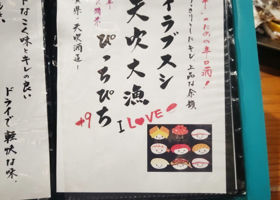 のための辛口酒!
キレ 上品な余韻
イラブスシ
天吹大漁
ぴっちぴち
+9
県 天吹酒造
I LOVE
なこく味とキレの良い
ドライで軽快な味.